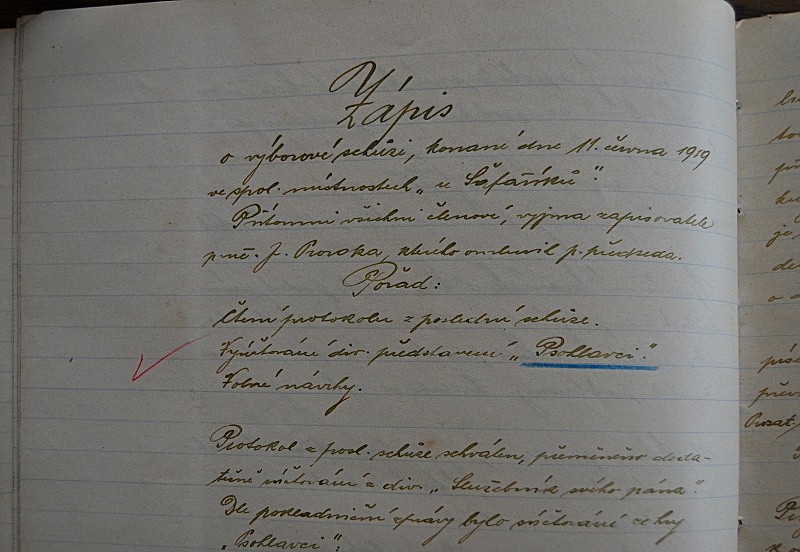 Zápis
o výborové schůzi, konané dne 11. června 1919
ve spol. místnostech „u Šafaříků“.
Přítomni všichni členové, vyjma zapisovatele
p. uč. J. Proroka, kterého omluvil p. předseda.
Pořad:
Čtení protokolu z poslední schůze.
Vyúčtování div. představení „Psohlavci.“
Volné návrhy.
Protokol z posl. schůze schválen, přeměněno doda-
tečně účtování z div. „Služebník svého pána“.
Dle pokladniční zprávy bylo súčtováné ze hry
„Psohlavci“: